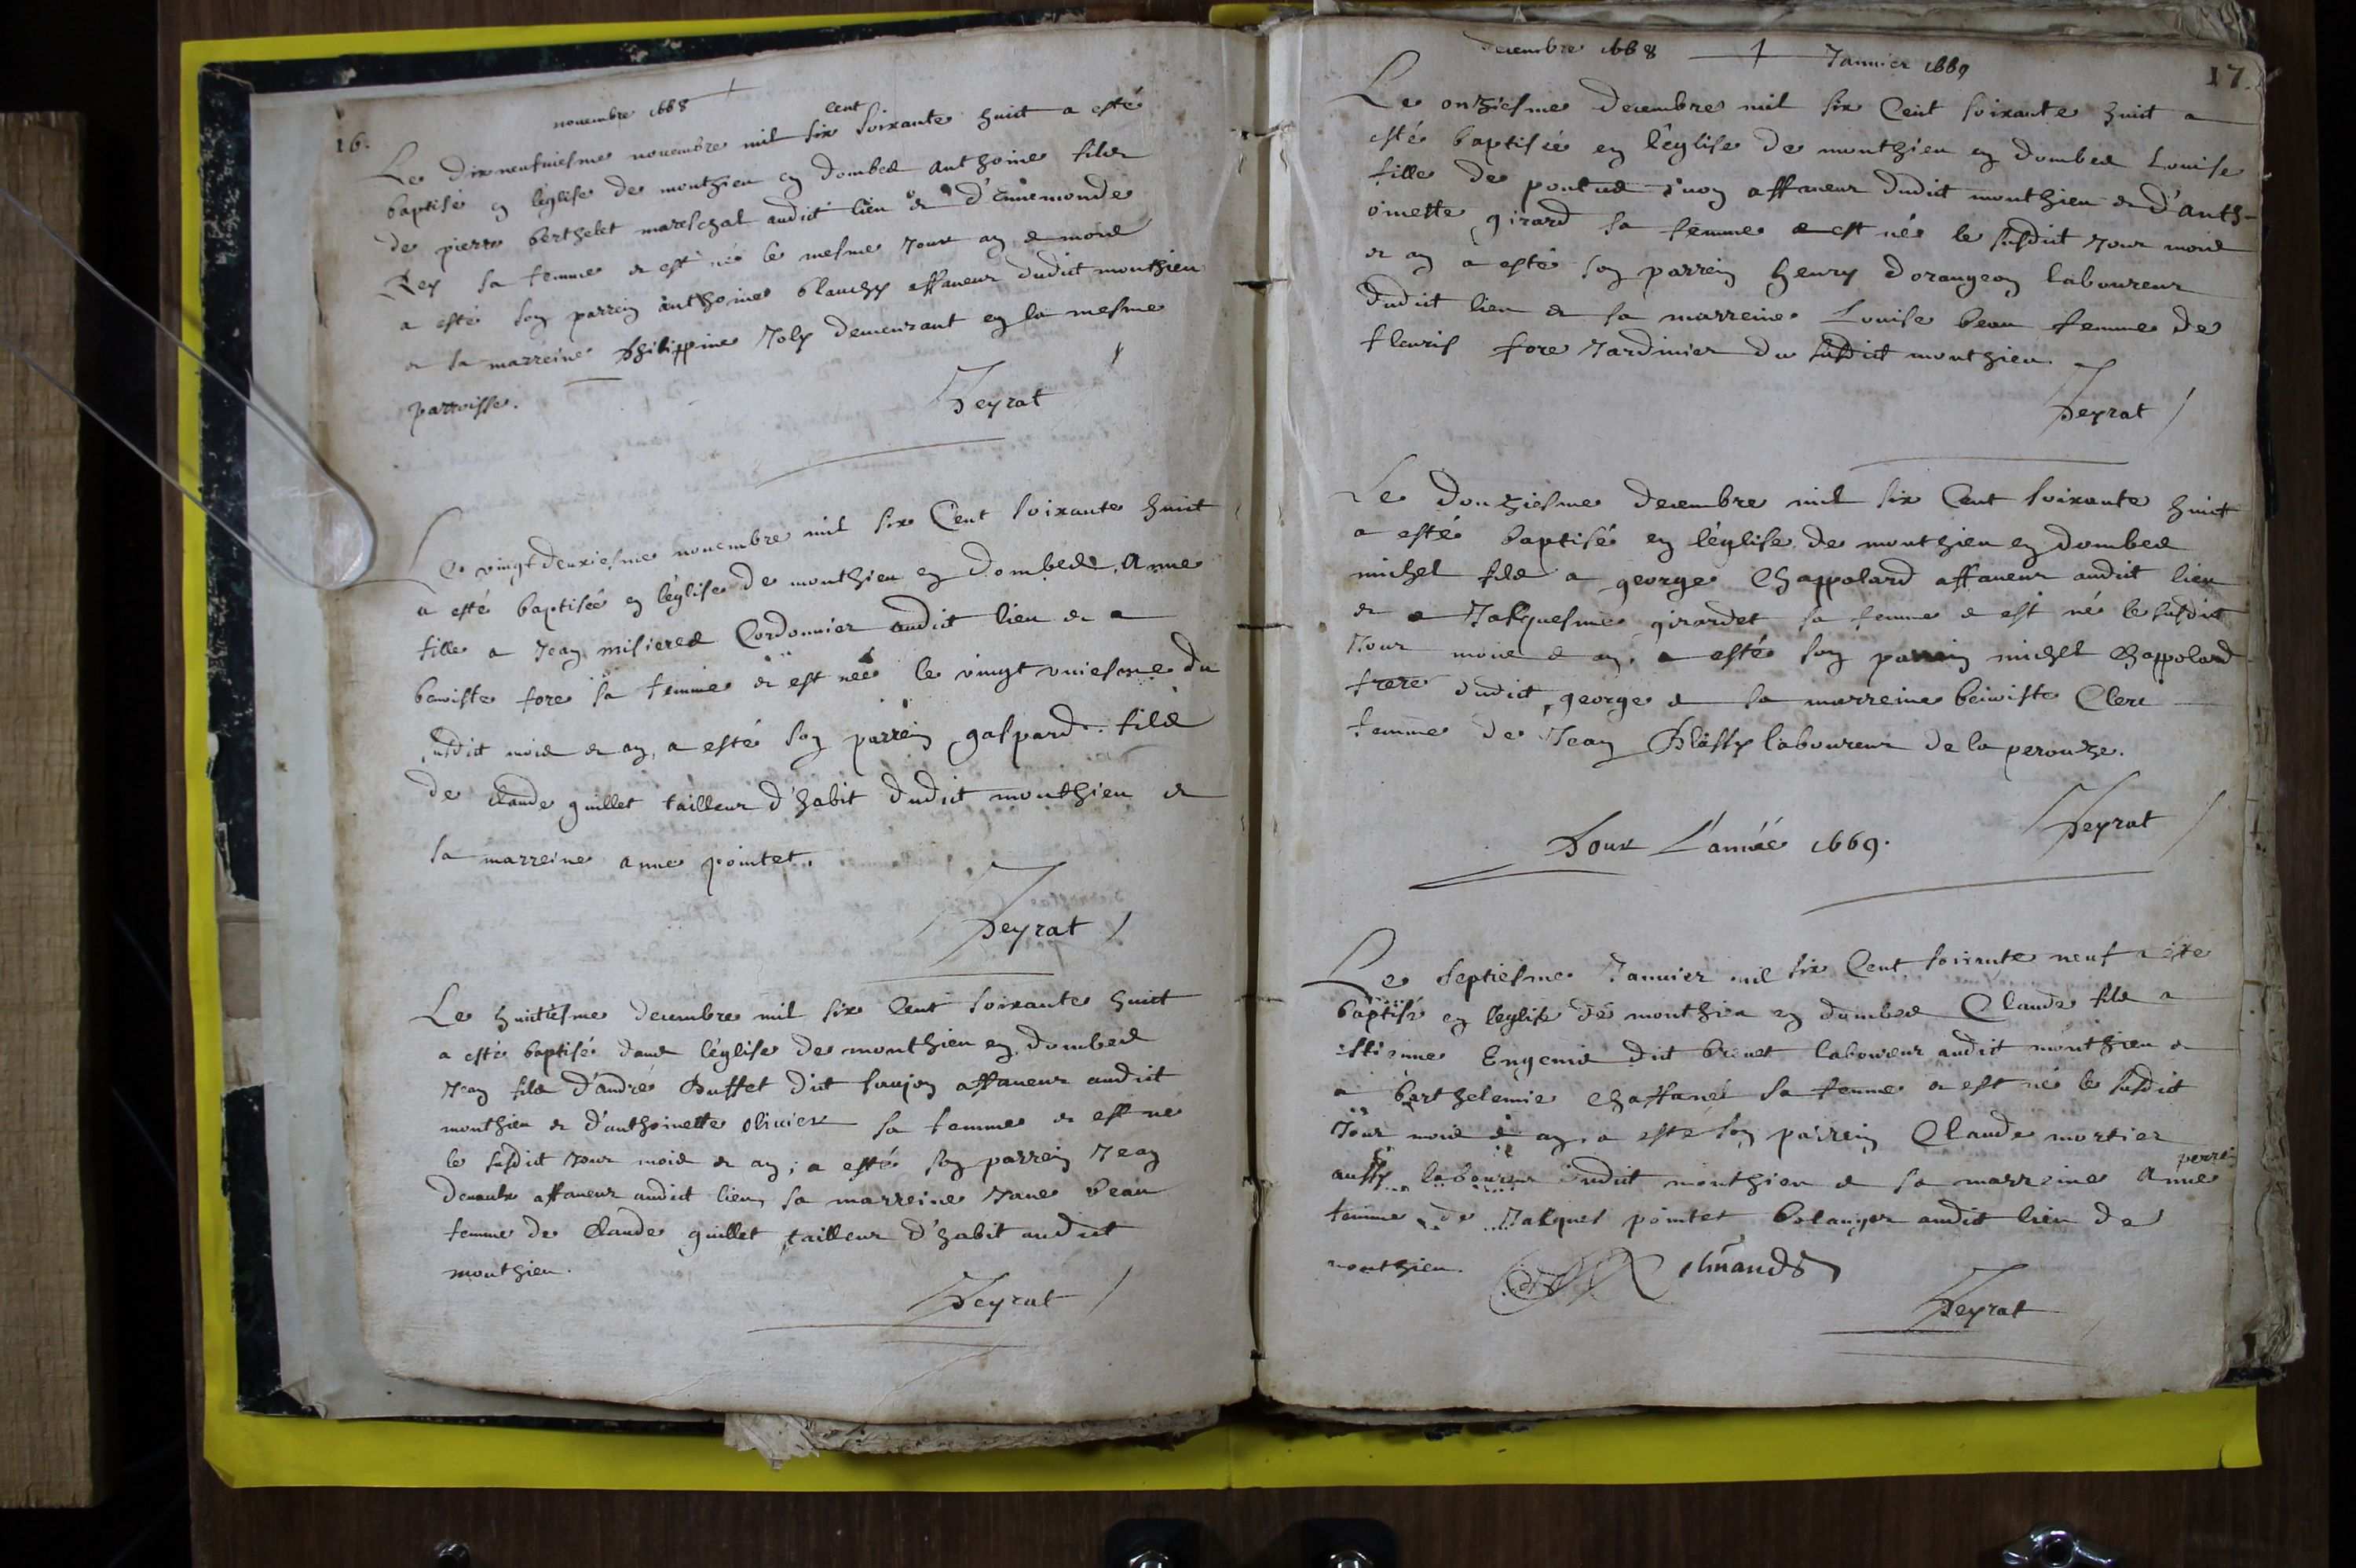 novembre 1668
16.
Le dixneufviesme novembre mil six cent soixante huict a esté
baptisé en l'église de monthieu en dombes anthoine filz
de pierre berthelet mareschal audict lieu et d'ennemonde
Rey sa femme et est né le mesme jour an et mois
a esté son parrein anthoine blanchy affaneur dudict monthieu
et sa marreine Philippine Joly demeurant en la mesme
parroisse.
Peyrat
Le vingt deuxiesme novembre mil six Cent soixante huict
a esté baptisée en l'église de monthieu en dombes, Anne
fille a Jean misieres Cordonnier audict lieu et a
benoiste fore sa femme et est née le vingt uniesme du
susdict mois et an, a esté son parrein gaspard filz
de Claude guillet tailleur d'habit dudict monthieu et
sa marreine anne pointet.
Peyrat
Le huictiesme decembre mil six Cent soixante huict
a esté baptisé dans l'église de monthieu en dombes
Jean filz d'andré Buffet dict saujon affaneur audict
monthieu et d'anthoinette olivier sa femme et est né
le susdict jour mois et an, a esté son parrein Jean
affaneur audict lieu, sa marreine Jane beau
femme de Claude guillet tailleur d'habit audict
monthieu.
Peyrat
decembre 1668 Janvier 1669
17.
Le onziesme decembre mil six Cent soixante huict a
esté baptisée en l'église de monthieu en dombes Louise
fille de pontus affaneur dudict monthieu et d'anth-
oinette girard sa femme et est née le susdict jour mois
et an a esté son parrein henry dorangeon laboureur
dudict lieu et sa marreine Louise beau femme de
fleuris fore Jardinier du susdict monthieu.
Peyrat
Le douziesme decembre mil six Cent soixante huict
a esté baptisé en l'église de monthieu en dombes
michel filz a george Chappolard affaneur audict lieu
et a Jacquesme girardet sa femme et est né le susdict
Jour mois et an, a esté son parrein michel Chappolard
frere dudict george et sa marreine benoiste Clerc
femme de Jean Plassy laboureur de la perouze.
Peyrat
Pour L'année 1669.
Le septiesme Janvier mil six Cent soixante neuf a esté
baptisé en l'église de monthieu en dombes Claude filz a
estienne Engenis dict brenet laboureur audict monthieu et
a barthelemie Chaffané sa femme et est né le susdict
Jour mois et an, a esté son parrein Claude mortier
aussy laboureur dudict monthieu et sa marreine Anne perrei
femme de Jacques pointet bolanger audict lieu de
monthieu.
Peyrat